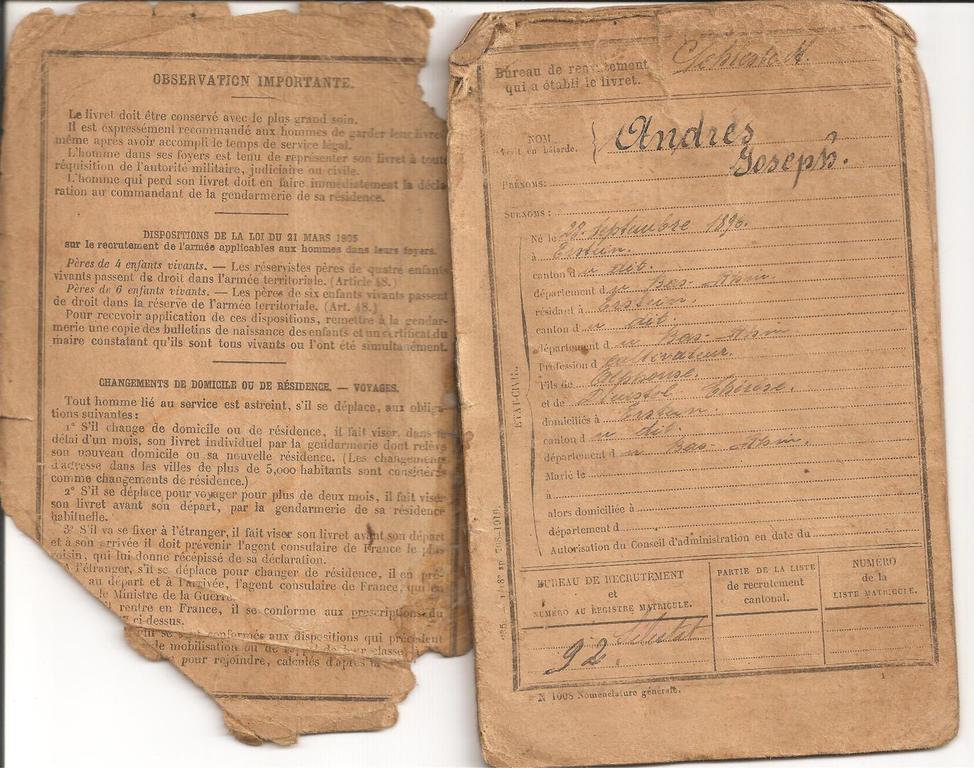 OBSERVATION IMPORTANTE.
Le livret doit être conservé avec le plus grand soin.
Il est expressément recommandé aux hommes de garder leur livret
même après avoir accompli le temps de service légal.
L'homme dans ses foyers est tenu de représenter son livret à toute
réquisition de l'autorité militaire, judiciaire ou civile.
L'homme qui perd son livret doit en faire immédiatement la décla-
ration au commandant de la gendarmerie de sa résidence.
DISPOSITIONS DE LA LOI DU 21 MARS 1905
sur le recrutement de l'armée applicables aux hommes dans leurs foyers.
Pères de 4 enfants vivants. — Les réservistes pères de quatre enfants
vivants passent de droit dans l'armée territoriale. (Article 48.)
Pères de 6 enfants vivants. — Les pères de six enfants vivants passent
de droit dans la réserve de l'armée territoriale. (Art. 48.)
Pour recevoir application de ces dispositions, remettre à la gendar-
merie une copie des bulletins de naissance des enfants et un certificat du
maire constatant qu'ils sont tous vivants ou l'ont été simultanément.
CHANGEMENTS DE DOMICILE OU DE RÉSIDENCE. — VOYAGES.
Tout homme lié au service est astreint, s'il se déplace, aux obliga-
tions suivantes:
1° S'il change de domicile ou de résidence, il fait viser, dans le
délai d'un mois, son livret individuel par la gendarmerie dont relève
son nouveau domicile ou sa nouvelle résidence. (Les changements
d'adresse dans les villes de plus de 5,000 habitants sont considérés
comme changements de résidence.)
2° S'il se déplace pour voyager pour plus de deux mois, il fait viser
son livret avant son départ, par la gendarmerie de sa résidence
habituelle.
3° S'il va se fixer à l'étranger, il fait viser son livret avant son départ
et à son arrivée il doit prévenir l'agent consulaire de France le plus
voisin, qui lui donne récépissé de sa déclaration.
A l'étranger, s'il se déplace pour changer de résidence, il en pré-
au départ et à l'arrivée, l'agent consulaire de France, qui en
le Ministre de la Guerre.
rentre en France, il se conforme aux prescriptions du
ci-dessus.
conformés aux dispositions qui précèdent
de mobilisation ou de
pour rejoindre, calculés d'après la
Bureau de recrutement
qui a établi le livret.
NOM
Andrès
Joseph.
PRÉNOMS:
SURNOMS:
ÉTAT CIVIL.
Né le 22 Septembre 1890.
à Erstein.
canton d u dit.
département d u Bas-Rhin.
résidant à Erstein.
canton d u dit.
département d u Bas-Rhin
Profession d cultivateur.
Fils de Alphonse.
et de Thérèse.
domiciliés à Erstein.
canton d u dit.
département d u Bas-Rhin.
Marié le
à
alors domiciliée à
département d
Autorisation du Conseil d'administration en date du
BUREAU DE RECRUTEMENT
et
NUMÉRO AU REGISTRE MATRICULE.
PARTIE DE LA LISTE
de recrutement
cantonal.
NUMÉRO
de la
LISTE MATRICULE.
92.
N° 1008 Nomenclature générale.
1